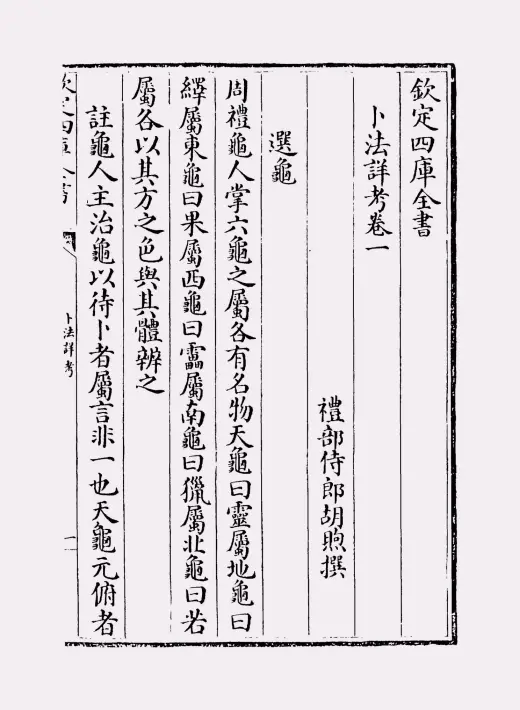 欽定四庫全書
卜法詳考卷一
禮部侍郎胡煦撰
選龜
周禮龜人掌六龜之屬各有名物天龜曰靈屬地龜曰
繹屬東龜曰果屬西龜曰靁屬南龜曰獵屬北龜曰若
屬各以其方之色與其體辨之
註龜人主治龜以待卜者屬言非一也天龜元俯者
欽定四庫全書
卜法詳考
一